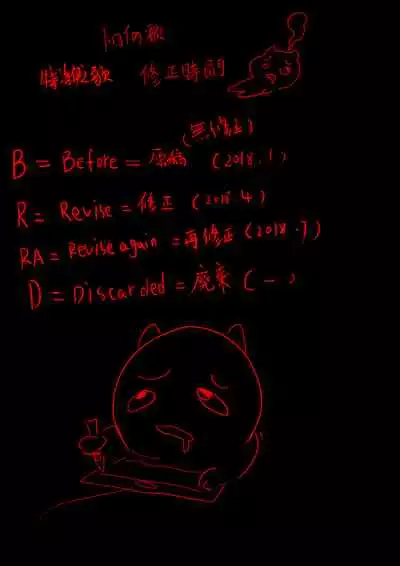 修正時間
(無修正)
B = Before = 原稿 (2018.1)
R = Revise = 修正 (2018.4)
RA = Revise again = 再修正 (2018.7)
D = Discarded = 廃棄 (一)